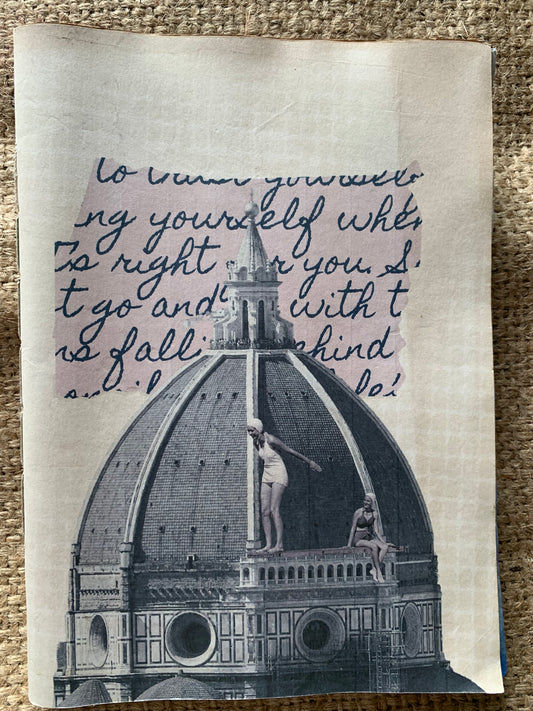 to trust yourself
ng yourself when
t's right for you. S
t go and with t
ns falli ehind